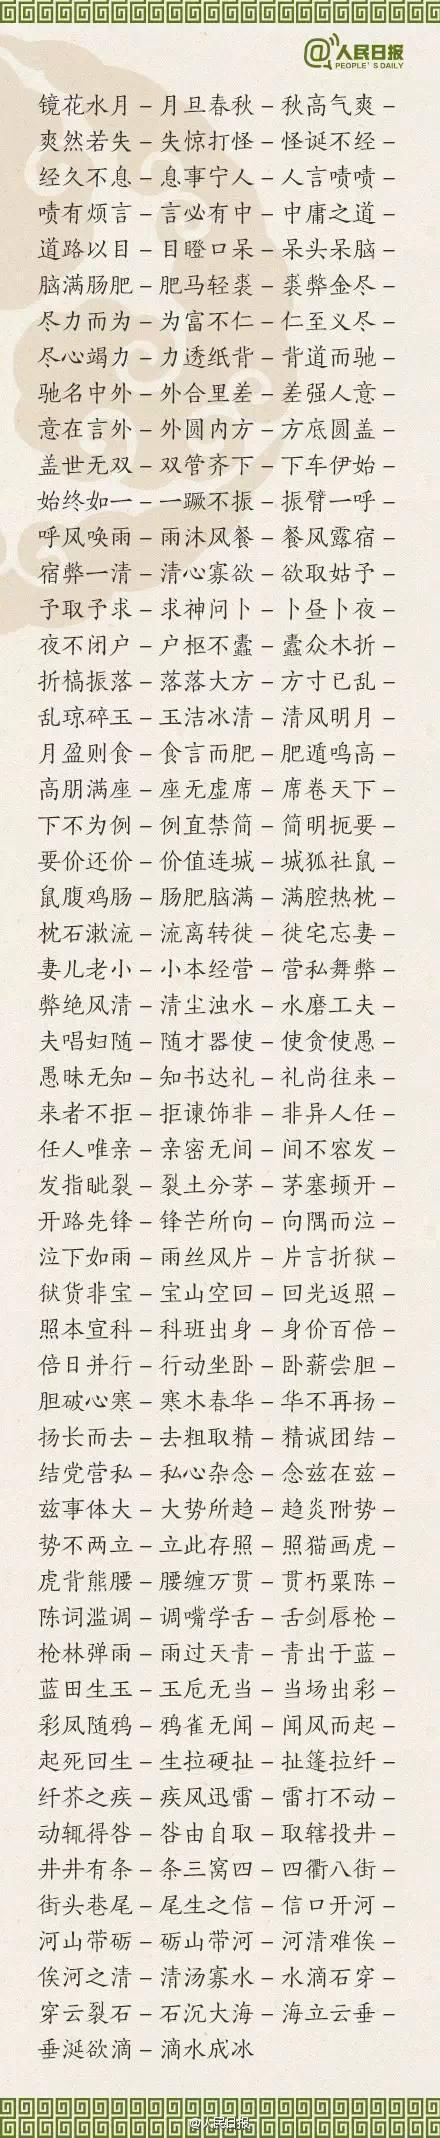 @人民日报
PEOPLE'S DAILY
镜花水月－月旦春秋－秋高气爽－
爽然若失－失惊打怪－怪诞不经－
经久不息－息事宁人－人言啧啧－
啧有烦言－言必有中－中庸之道－
道路以目－目瞪口呆－呆头呆脑－
脑满肠肥－肥马轻裘－裘弊金尽－
尽力而为－为富不仁－仁至义尽－
尽心竭力－力透纸背－背道而驰－
驰名中外－外合里差－差强人意－
意在言外－外圆内方－方底圆盖－
盖世无双－双管齐下－下车伊始－
始终如一－一蹶不振－振臂一呼－
呼风唤雨－雨沐风餐－餐风露宿－
宿弊一清－清心寡欲－欲取姑予－
予取予求－求神问卜－卜昼卜夜－
夜不闭户－户枢不蠹－蠹众木折－
折槁振落－落落大方－方寸已乱－
乱琼碎玉－玉洁冰清－清风明月－
月盈则食－食言而肥－肥遁鸣高－
高朋满座－座无虚席－席卷天下－
下不为例－例直禁简－简明扼要－
要价还价－价值连城－城狐社鼠－
鼠腹鸡肠－肠肥脑满－满腔热枕－
枕石漱流－流离转徙－徙宅忘妻－
妻儿老小－小本经营－营私舞弊－
弊绝风清－清尘浊水－水磨工夫－
夫唱妇随－随才器使－使贪使愚－
愚昧无知－知书达礼－礼尚往来－
来者不拒－拒谏饰非－非异人任－
任人唯亲－亲密无间－间不容发－
发指眦裂－裂土分茅－茅塞顿开－
开路先锋－锋芒所向－向隅而泣－
泣下如雨－雨丝风片－片言折狱－
狱货非宝－宝山空回－回光返照－
照本宣科－科班出身－身价百倍－
倍日并行－行动坐卧－卧薪尝胆－
胆破心寒－寒木春华－华不再扬－
扬长而去－去粗取精－精诚团结－
结党营私－私心杂念－念兹在兹－
兹事体大－大势所趋－趋炎附势－
势不两立－立此存照－照猫画虎－
虎背熊腰－腰缠万贯－贯朽粟陈－
陈词滥调－调嘴学舌－舌剑唇枪－
枪林弹雨－雨过天青－青出于蓝－
蓝田生玉－玉卮无当－当场出彩－
彩凤随鸦－鸦雀无闻－闻风而起－
起死回生－生拉硬扯－扯篷拉纤－
纤芥之疾－疾风迅雷－雷打不动－
动辄得咎－咎由自取－取辖投井－
井井有条－条三窝四－四衢八街－
街头巷尾－尾生之信－信口开河－
河山带砺－砺山带河－河清难俟－
俟河之清－清汤寡水－水滴石穿－
穿云裂石－石沉大海－海立云垂－
垂涎欲滴－滴水成冰
@人民日报